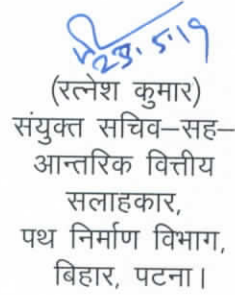 23.5.19
(रत्नेश कुमार)
संयुक्त सचिव–सह–
आन्तरिक वित्तीय
सलाहकार,
पथ निर्माण विभाग,
बिहार, पटना।